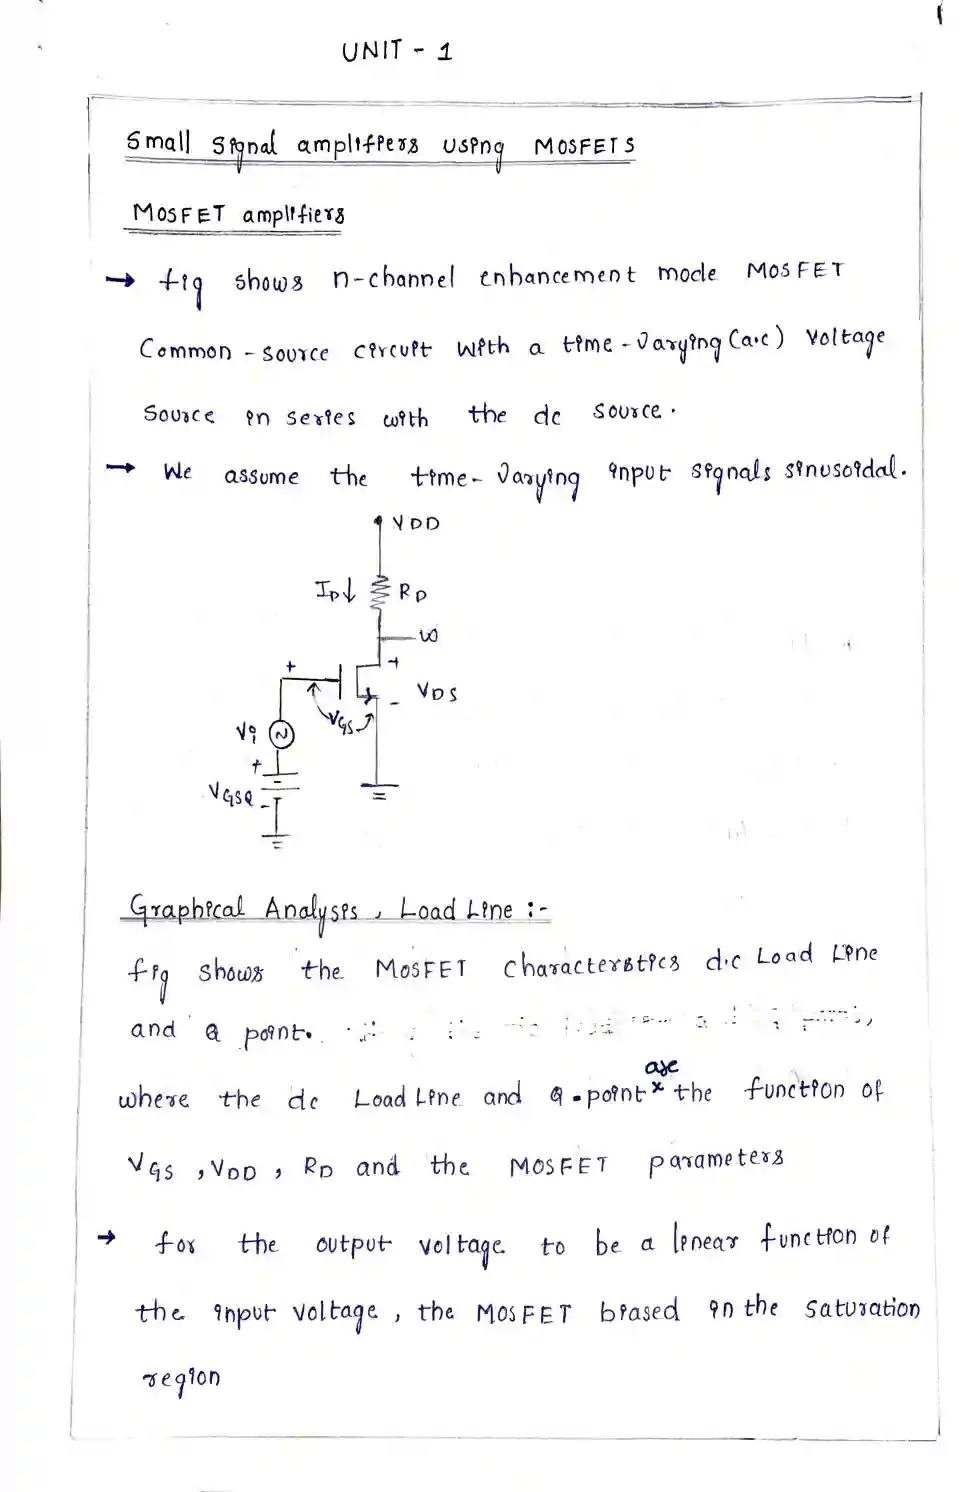 1
UNIT - 1
Small Signal amplifiers using MOSFETS
MOSFET amplifiers
→ fig shows n-channel enhancement mode MOSFET
Common - source circuit with a time - Varying (a.c) Voltage
Source in series with the dc source.
→ We assume the time- Varying input signals sinusoidal.
VDD
ID↓ RD
vo
+
+
VDS
-
VGS
Vi
+
VGSQ
-
Graphical Analysis, Load Line :-
fig shows the MOSFET characterstics d.c Load Line
and Q point.
are
where the dc Load Line and Q-point x the function of
VGS, VDD, RD and the MOSFET parameters
→ for the output voltage to be a linear function of
the input voltage, the MOSFET biased in the saturation
region